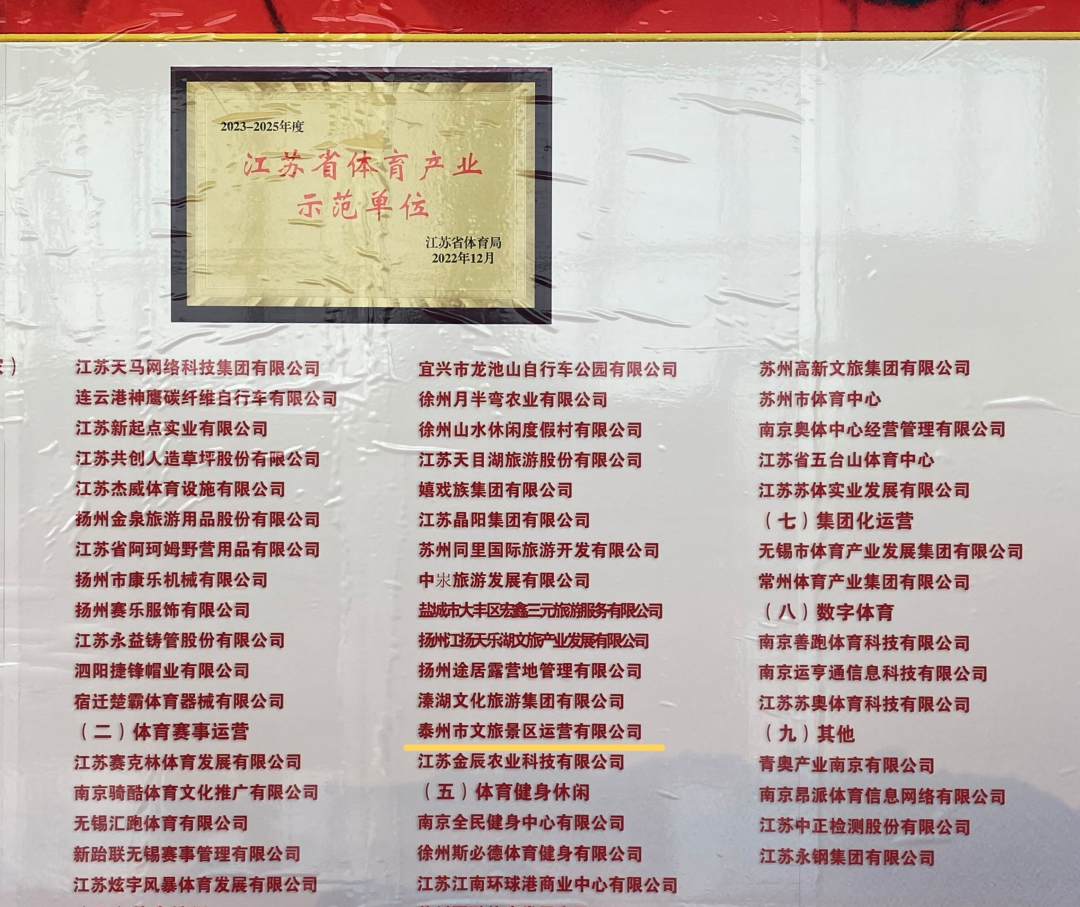 2023-2025年度
江苏省体育产业
示范单位
江苏省体育局
2022年12月
）
江苏天马网络科技集团有限公司
连云港神鹰碳纤维自行车有限公司
江苏新起点实业有限公司
江苏共创人造草坪股份有限公司
江苏杰威体育设施有限公司
扬州金泉旅游用品股份有限公司
江苏省阿珂姆野营用品有限公司
扬州市康乐机械有限公司
扬州赛乐服饰有限公司
江苏永益铸管股份有限公司
泗阳捷锋帽业有限公司
宿迁楚霸体育器械有限公司
（二）体育赛事运营
江苏赛克林体育发展有限公司
南京骑酷体育文化推广有限公司
无锡汇跑体育有限公司
新跆联无锡赛事管理有限公司
江苏炫宇风暴体育发展有限公司
宜兴市龙池山自行车公园有限公司
徐州月半弯农业有限公司
徐州山水休闲度假村有限公司
江苏天目湖旅游股份有限公司
嬉戏族集团有限公司
江苏晶阳集团有限公司
苏州同里国际旅游开发有限公司
中氺旅游发展有限公司
盐城市大丰区宏鑫三元旅游服务有限公司
扬州江扬天乐湖文旅产业发展有限公司
扬州途居露营地管理有限公司
溱湖文化旅游集团有限公司
泰州市文旅景区运营有限公司
江苏金辰农业科技有限公司
（五）体育健身休闲
南京全民健身中心有限公司
徐州斯必德体育健身有限公司
江苏江南环球港商业中心有限公司
苏州高新文旅集团有限公司
苏州市体育中心
南京奥体中心经营管理有限公司
江苏省五台山体育中心
江苏苏体实业发展有限公司
（七）集团化运营
无锡市体育产业发展集团有限公司
常州体育产业集团有限公司
（八）数字体育
南京善跑体育科技有限公司
南京运亨通信息科技有限公司
江苏苏奥体育科技有限公司
（九）其他
青奥产业南京有限公司
南京昂派体育信息网络有限公司
江苏中正检测股份有限公司
江苏永钢集团有限公司